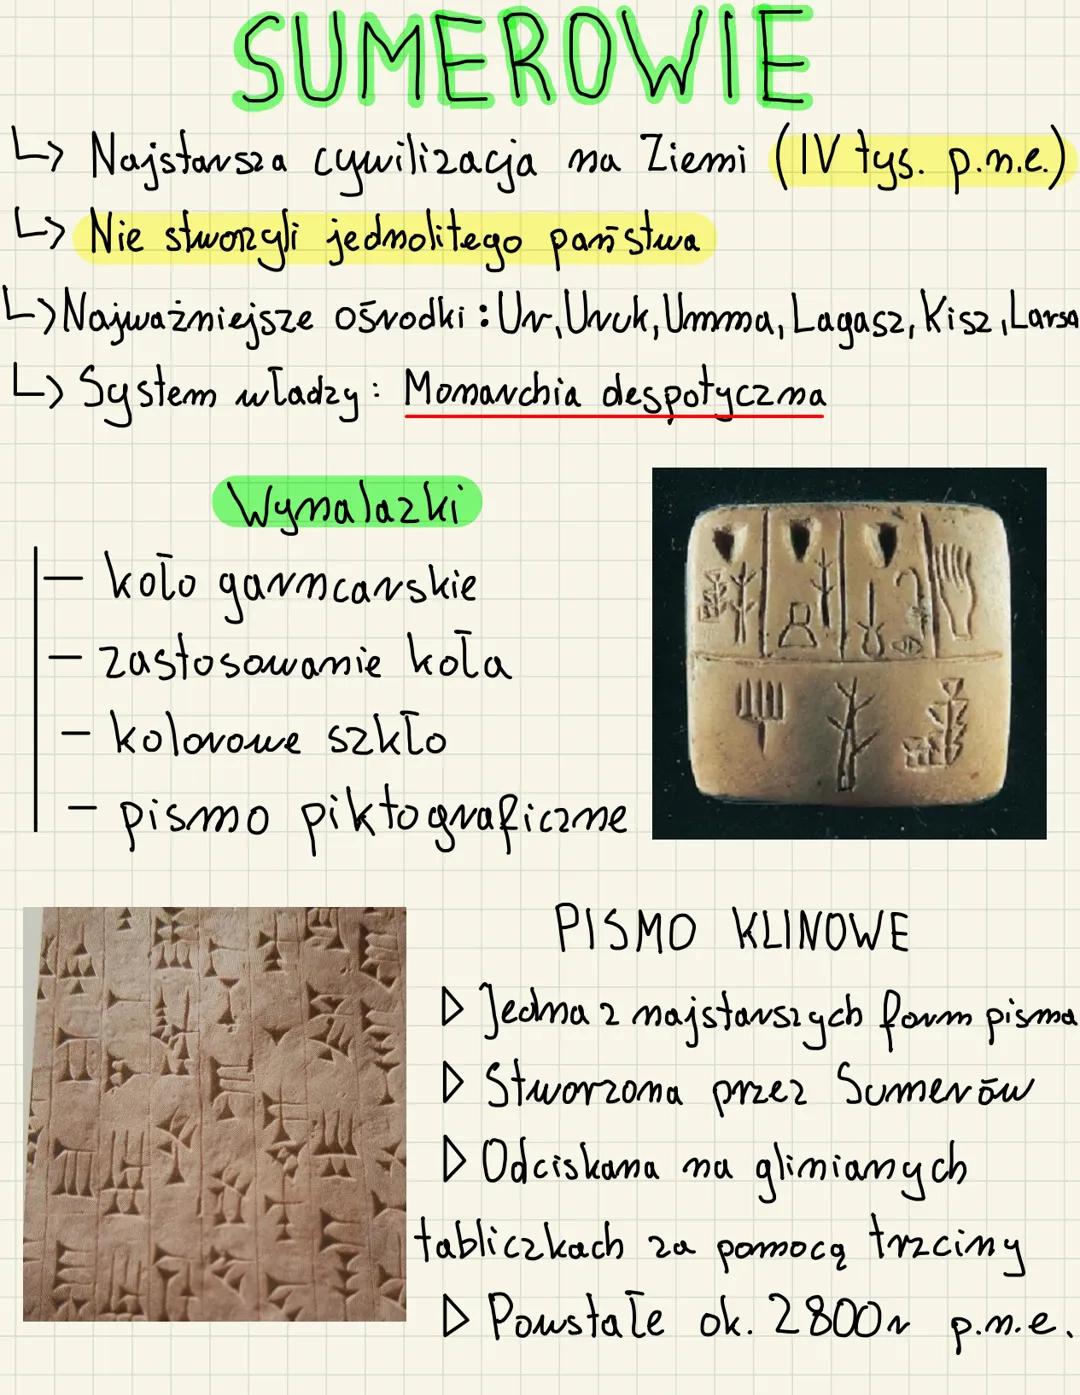 SUMEROWIE
↳ Najstarsza cywilizacja na Ziemi (IV tys. p.n.e.)
↳ Nie stworzyli jednolitego państwa
↳ Najważniejsze ośrodki: Ur, Uruk, Umma, Lagasz, Kisz, Larsa
↳ System władzy: Monarchia despotyczna
Wynalazki
- koło garncarskie
- zastosowanie koła
- kolorowe szkło
- pismo piktograficzne
PISMO KLINOWE
▷ Jedna z najstarszych form pisma
▷ Stworzona przez Sumerów
▷ Odciskana na glinianych
tabliczkach za pomocą trzciny
▷ Powstałe ok. 2800r p.n.e.